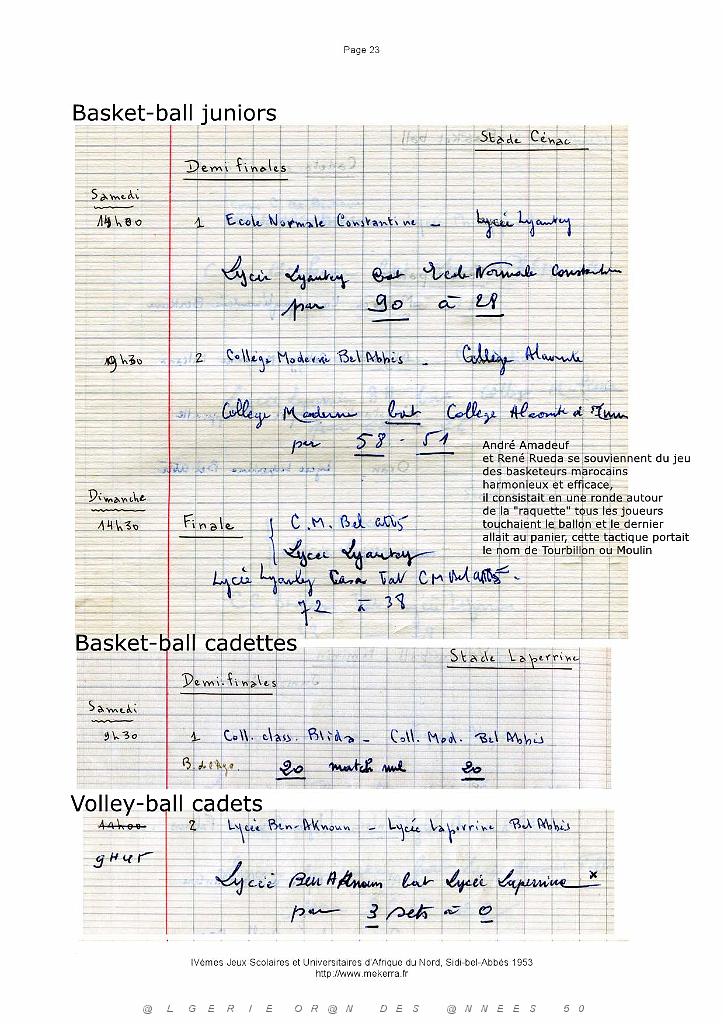 Page 23
Basket-ball juniors
Stade Cénac
Demi finales
Samedi
14h00 1 Ecole Normale Constantine - Lycée Lyautey
Lycée Lyautey bat Ecole Normale Constantine
par 90 à 28
9h30 2 Collège Moderne Bel Abbès - Collège Alaouite
Collège Moderne bat Collège Alaouite d'
par 58 - 51
André Amadeuf
et René Rueda se souviennent du jeu
des basketeurs marocains
harmonieux et efficace,
il consistait en une ronde autour
de la "raquette" tous les joueurs
touchaient le ballon et le dernier
allait au panier, cette tactique portait
le nom de Tourbillon ou Moulin
Dimanche
14h30 Finale { C.M. Bel abbès
Lycée Lyautey
Lycée Lyautey Casa bat CM Bel abbès.
72 à 38
Basket-ball cadettes
Stade Laperrine
Demi-finales
Samedi
9h30 1 Coll. class. Blida - Coll. Mod. Bel Abbès
20 match nul 20
Volley-ball cadets
14h00 2 Lycée Ben-Aknoun - Lycée Laperrine Bel Abbès
9H45
Lycée Ben Aknoun bat Lycée Laperrine x
par 3 sets à 0
IVèmes Jeux Scolaires et Universitaires d'Afrique du Nord, Sidi-bel-Abbès 1953
http://www.mekerra.fr
@ L G E R I E O R @ N D E S @ N N E E S 5 0